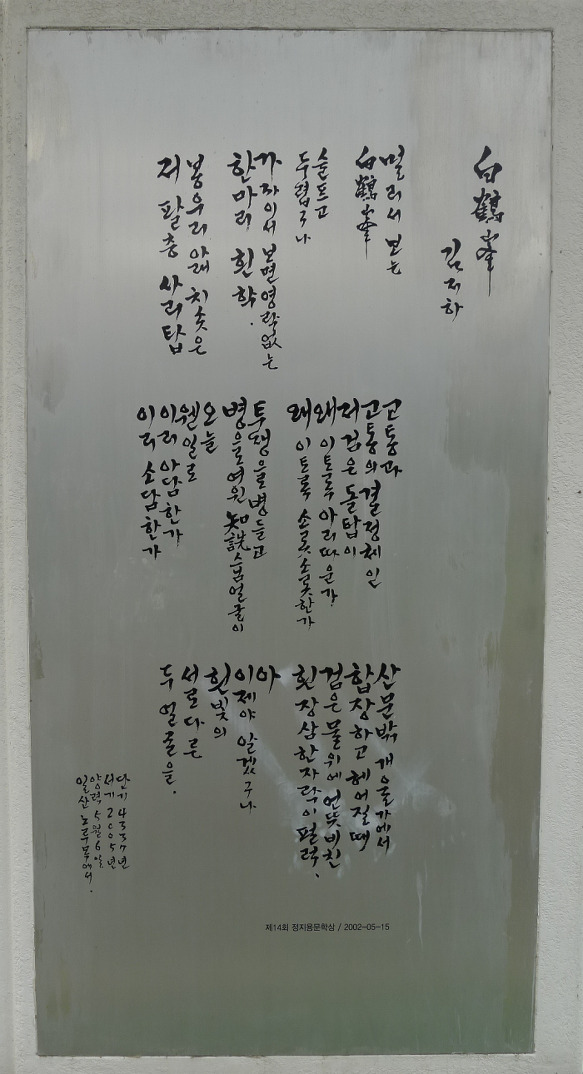 白鶴峯
김지하
멀리서 보는
白鶴峯
슬프고
두렵구나
가까이서 보면 영락없는
한마리 흰 학.
봉우리 아래 치솟은
저 팔층 사리탑
고통과
고통의 결정체인
저 검은 돌탑이
왜 이토록 아리따운가
왜 이토록 소롯소롯한가
투쟁을 병들고
병을 여윈 知詵스님 얼굴이
오늘
웬일로
이리 아담한가
이리 소담한가
산문 밖 개울가에서
합장하고 헤어질 때
검은 물 위에 언뜻 비친
흰 장삼 한자락이 펄럭,
아
이제야 알겠구나
흰빛의
서로 다른
두 얼굴을.
단기 4337년
서기 2005년
양력 5월 6일
일산 노루목에서.
제14회 정지용문학상 / 2002-05-15